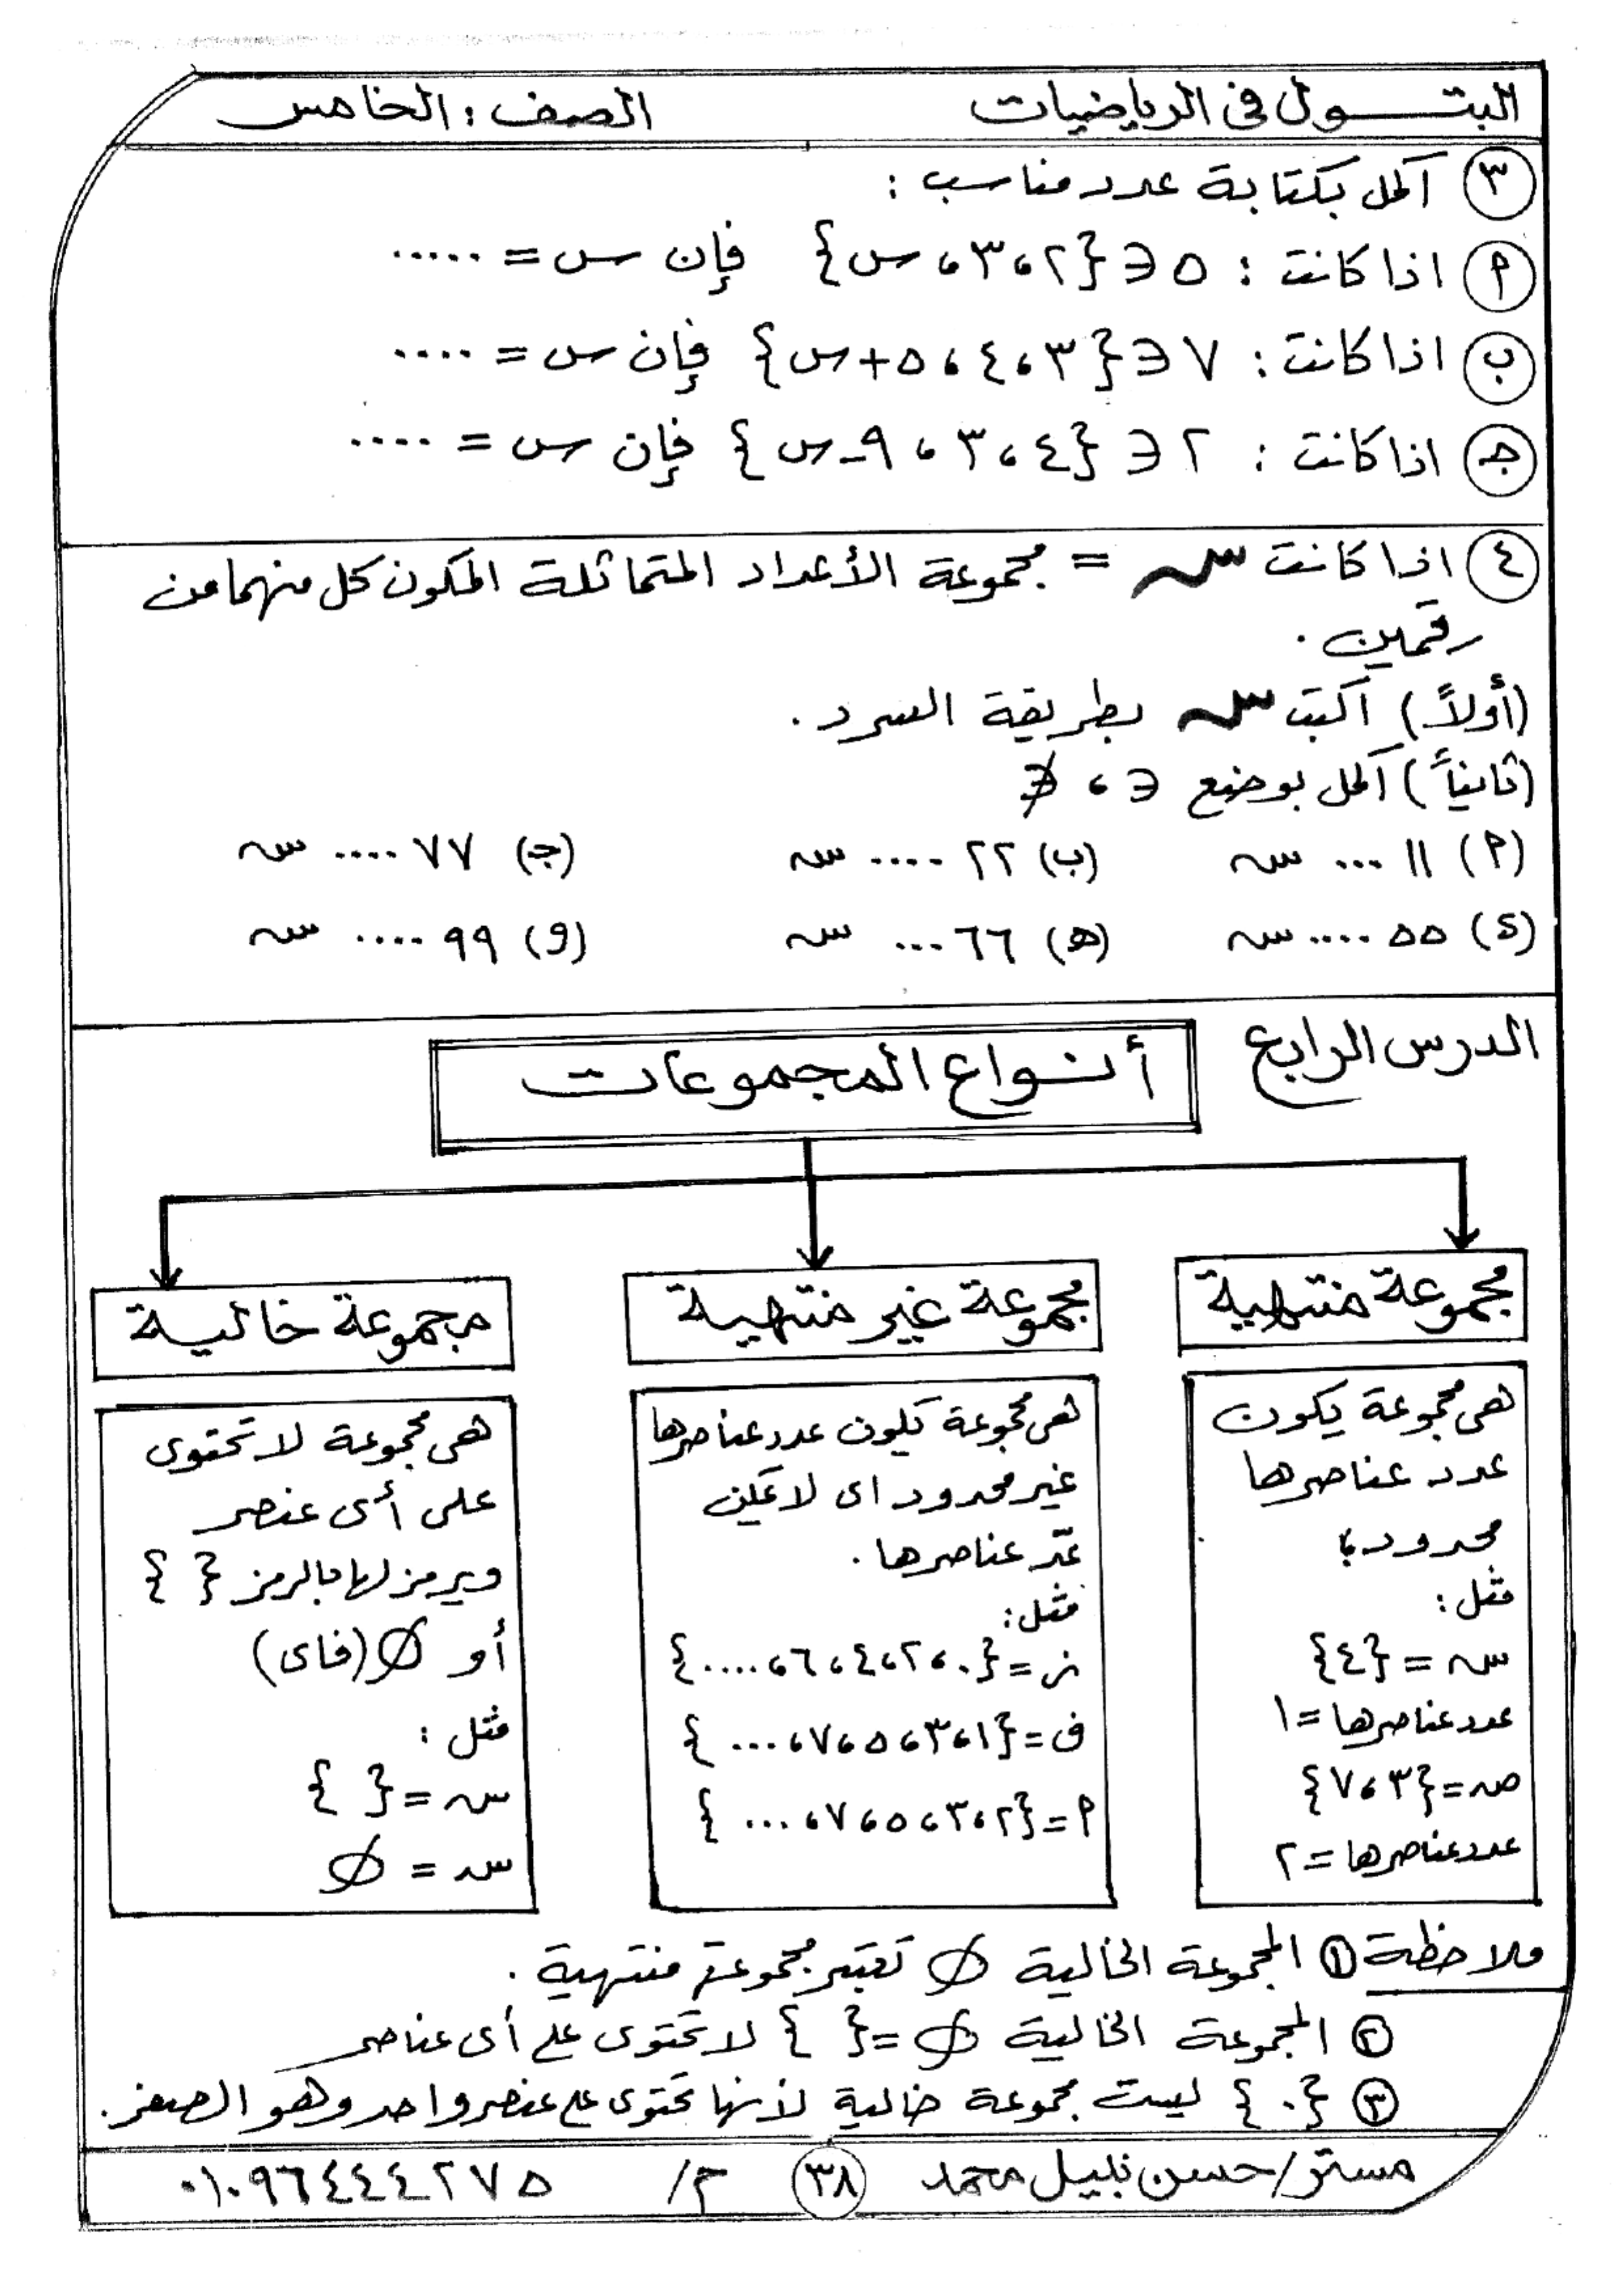 البتول فى الرياضيات الصف : الخامس
٣ أكمل بكتابة عدد مناسب :
أ اذا كانت : ٥ ∈ {٢ ، ٣ ، س} فإن س = .....
ب اذا كانت : ٧ ∈ {٣ ، ٤ ، ٥ + س} فإن س = ....
جـ اذا كانت : ٢ ∈ {٤ ، ٣ ، ٩ - س} فإن س = ....
٤ اذا كانت سـ = مجموعة الأعداد المتماثلة المكون كل منهما من
رقمين .
(أولاً) أكتب سـ بطريقة السرد .
(ثانياً) أكمل بوضع ∈ ، ∉
(أ) ١١ ... سـ (ب) ٢٢ .... سـ (جـ) ٧٧ .... سـ
(د) ٥٥ .... سـ (هـ) ٦٦ ... سـ (و) ٩٩ .... سـ
الدرس الرابع أنواع المجموعات
مجموعة منتهية
هى مجموعة يكون
عدد عناصرها
محدود؛
مثل :
سـ = {٤}
عدد عناصرها = ١
صـ = {٣ ، ٧}
عدد عناصرها = ٢
مجموعة غير منتهية
هى مجموعة يكون عدد عناصرها
غير محدود اى لا يمكن
عدّ عناصرها .
مثل :
ز = {٠ ، ٢ ، ٤ ، ٦ ، ....}
ف = {١ ، ٣ ، ٥ ، ٧ ، ...}
أ = {٢ ، ٣ ، ٥ ، ٧ ، ...}
مجموعة خالية
هى مجموعة لا تحتوى
على أى عنصر
ويرمز لها بالرمز { }
أو ∅ (فاى)
مثل :
سـ = { }
سـ = ∅
ملاحظة ① المجموعة الخالية ∅ تعتبر مجموعة منتهية .
② المجموعة الخالية ∅ = { } لا تحتوى على أى عناصر
③ {٠} ليست مجموعة خالية لأنها تحتوى على عنصر واحد وهو الصفر .
مستر / حسن نبيل محمد ٣٨ م / ٠١٠٩٦٤٤٤٢٧٥